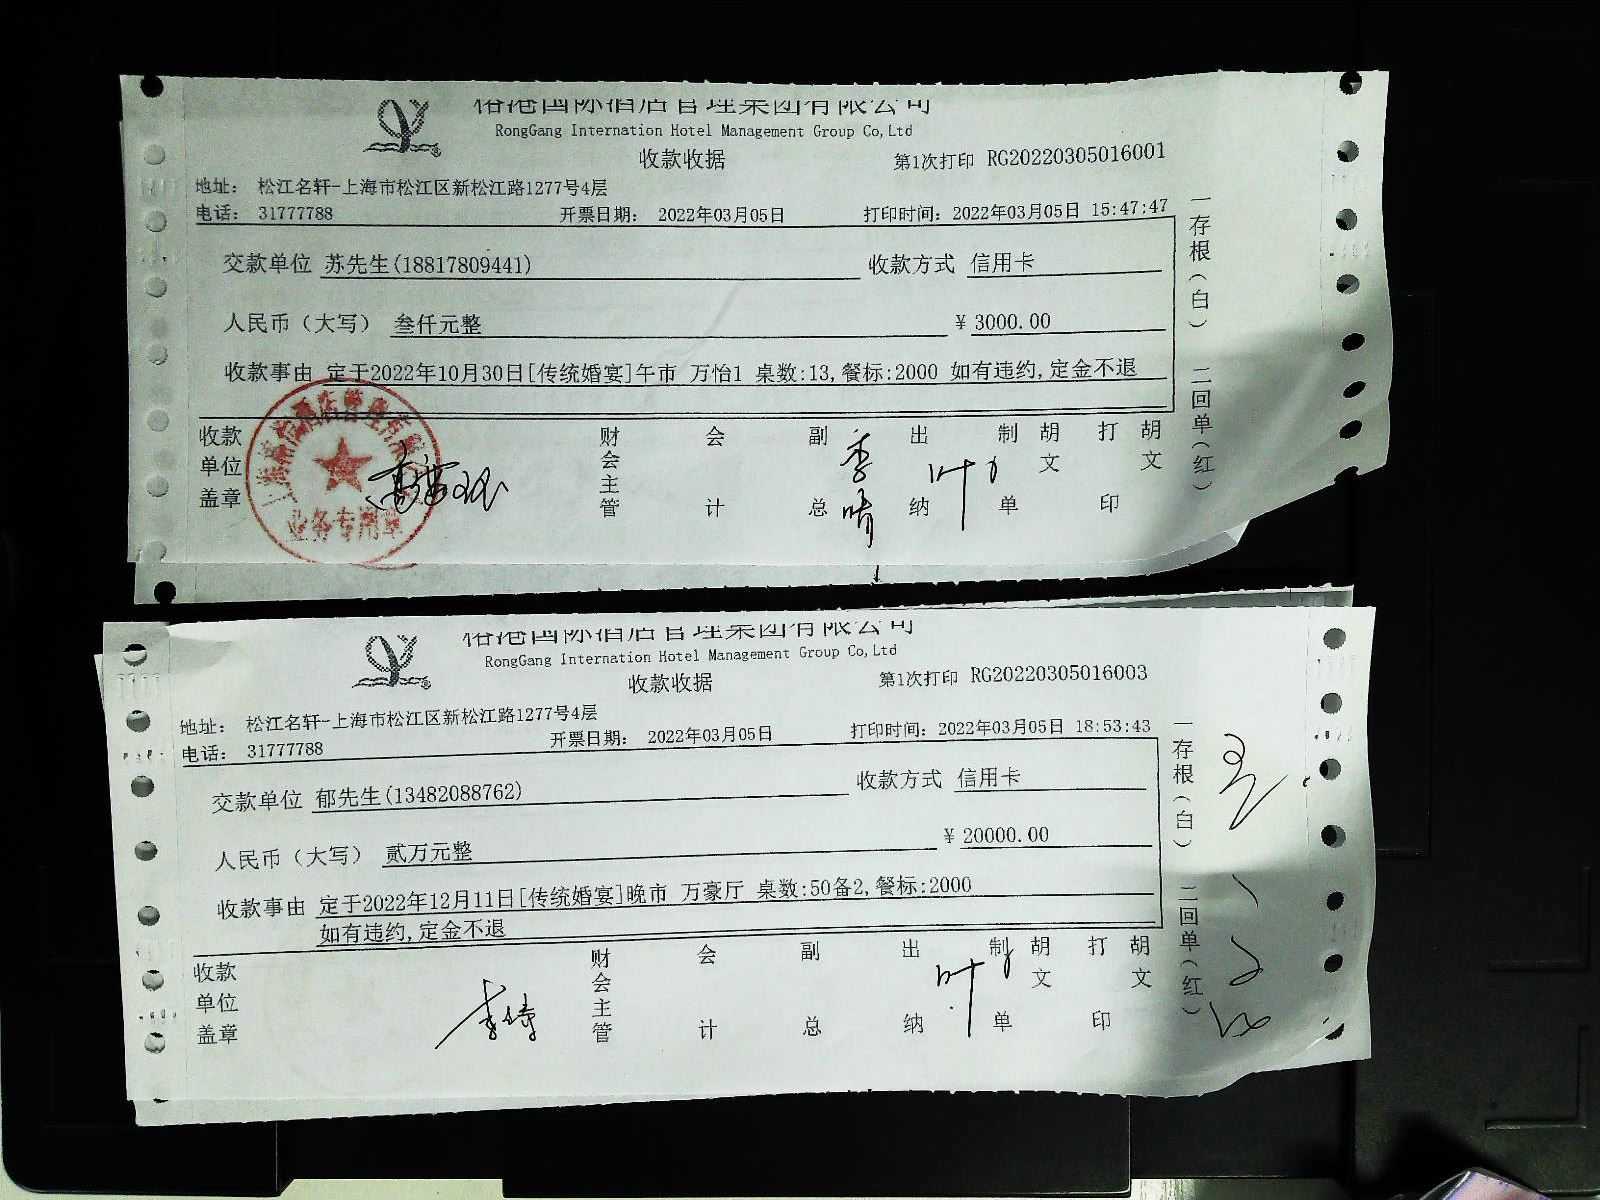 榕港国际酒店管理集团有限公司
RongGang Internation Hotel Management Group Co,Ltd
收款收据 第1次打印 RG20220305016001
地址： 松江名轩-上海市松江区新松江路1277号4层
电话： 31777788 开票日期： 2022年03月05日 打印时间：2022年03月05日 15:47:47
交款单位 苏先生(18817809441) 收款方式 信用卡
人民币（大写） 叁仟元整 ¥ 3000.00
收款事由 定于2022年10月30日[传统婚宴]午市 万怡1 桌数:13,餐标:2000 如有违约,定金不退
收款单位盖章 财会主管 会计 副总 李晴 出纳 叶 制单 胡文 打印 胡文
业务专用章
一存根（白） 二回单（红）
榕港国际酒店管理集团有限公司
RongGang Internation Hotel Management Group Co,Ltd
收款收据 第1次打印 RG20220305016003
地址： 松江名轩-上海市松江区新松江路1277号4层
电话： 31777788 开票日期： 2022年03月05日 打印时间：2022年03月05日 18:53:43
交款单位 郁先生(13482088762) 收款方式 信用卡
人民币（大写） 贰万元整 ¥ 20000.00
收款事由 定于2022年12月11日[传统婚宴]晚市 万豪厅 桌数:50备2,餐标:2000
如有违约,定金不退
收款单位盖章 财会主管 会计 副总 出纳 叶 制单 胡文 打印 胡文
一存根（白） 二回单（红）